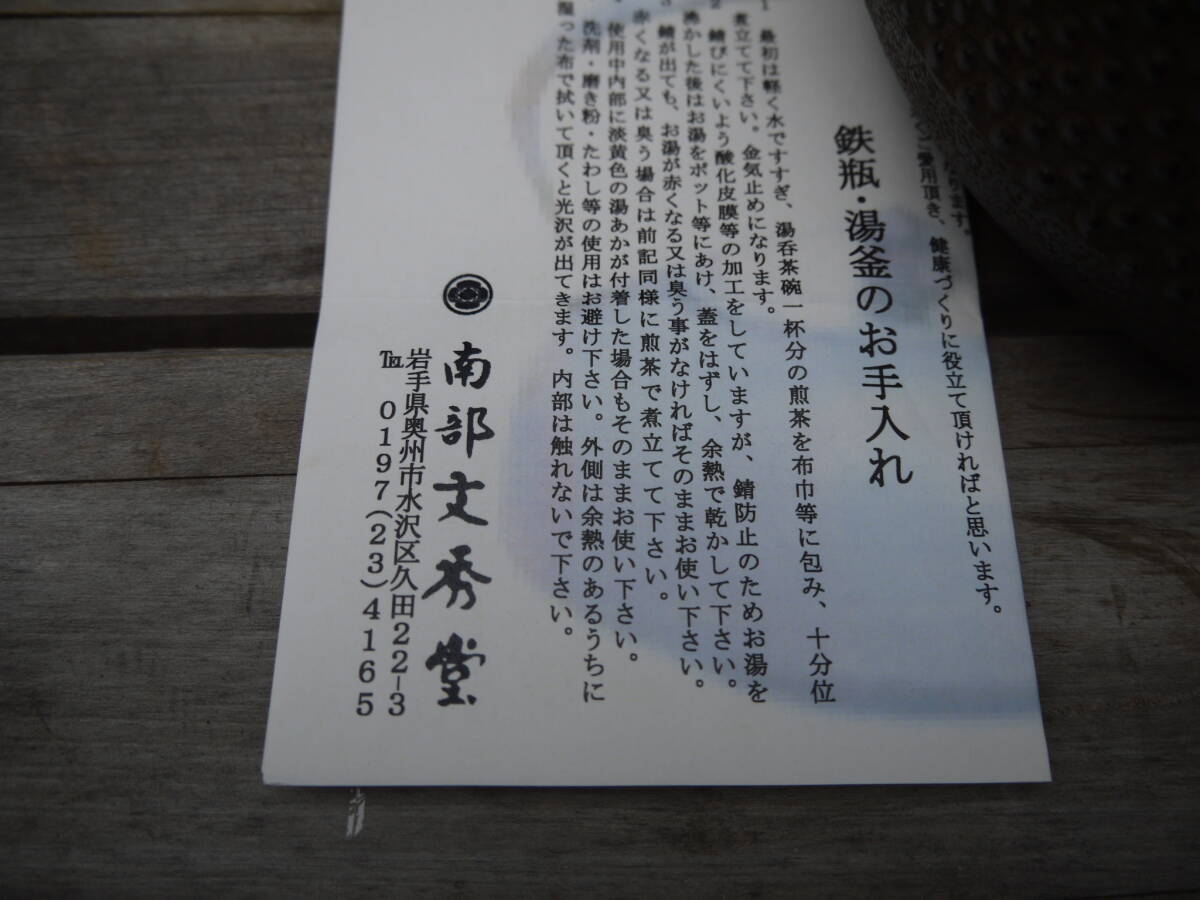 ります。
ご愛用頂き、健康づくりに役立て頂ければと思います。
鉄瓶・湯釜のお手入れ
1 最初は軽く水ですすぎ、湯呑茶碗一杯分の煎茶を布巾等に包み、十分位
煮立てて下さい。金気止めになります。
2 錆びにくいよう酸化皮膜等の加工をしていますが、錆防止のためお湯を
沸かした後はお湯をポット等にあけ、蓋をはずし、余熱で乾かして下さい。
3 錆が出ても、お湯が赤くなる又は臭う事がなければそのままお使い下さい。
赤くなる又は臭う場合は前記同様に煎茶で煮立てて下さい。
使用中内部に淡黄色の湯あかが付着した場合もそのままお使い下さい。
洗剤・磨き粉・たわし等の使用はお避け下さい。外側は余熱のあるうちに
湿った布で拭いて頂くと光沢が出てきます。内部は触れないで下さい。
南部文秀堂
岩手県奥州市水沢区久田22-3
℡ 0197(23)4165